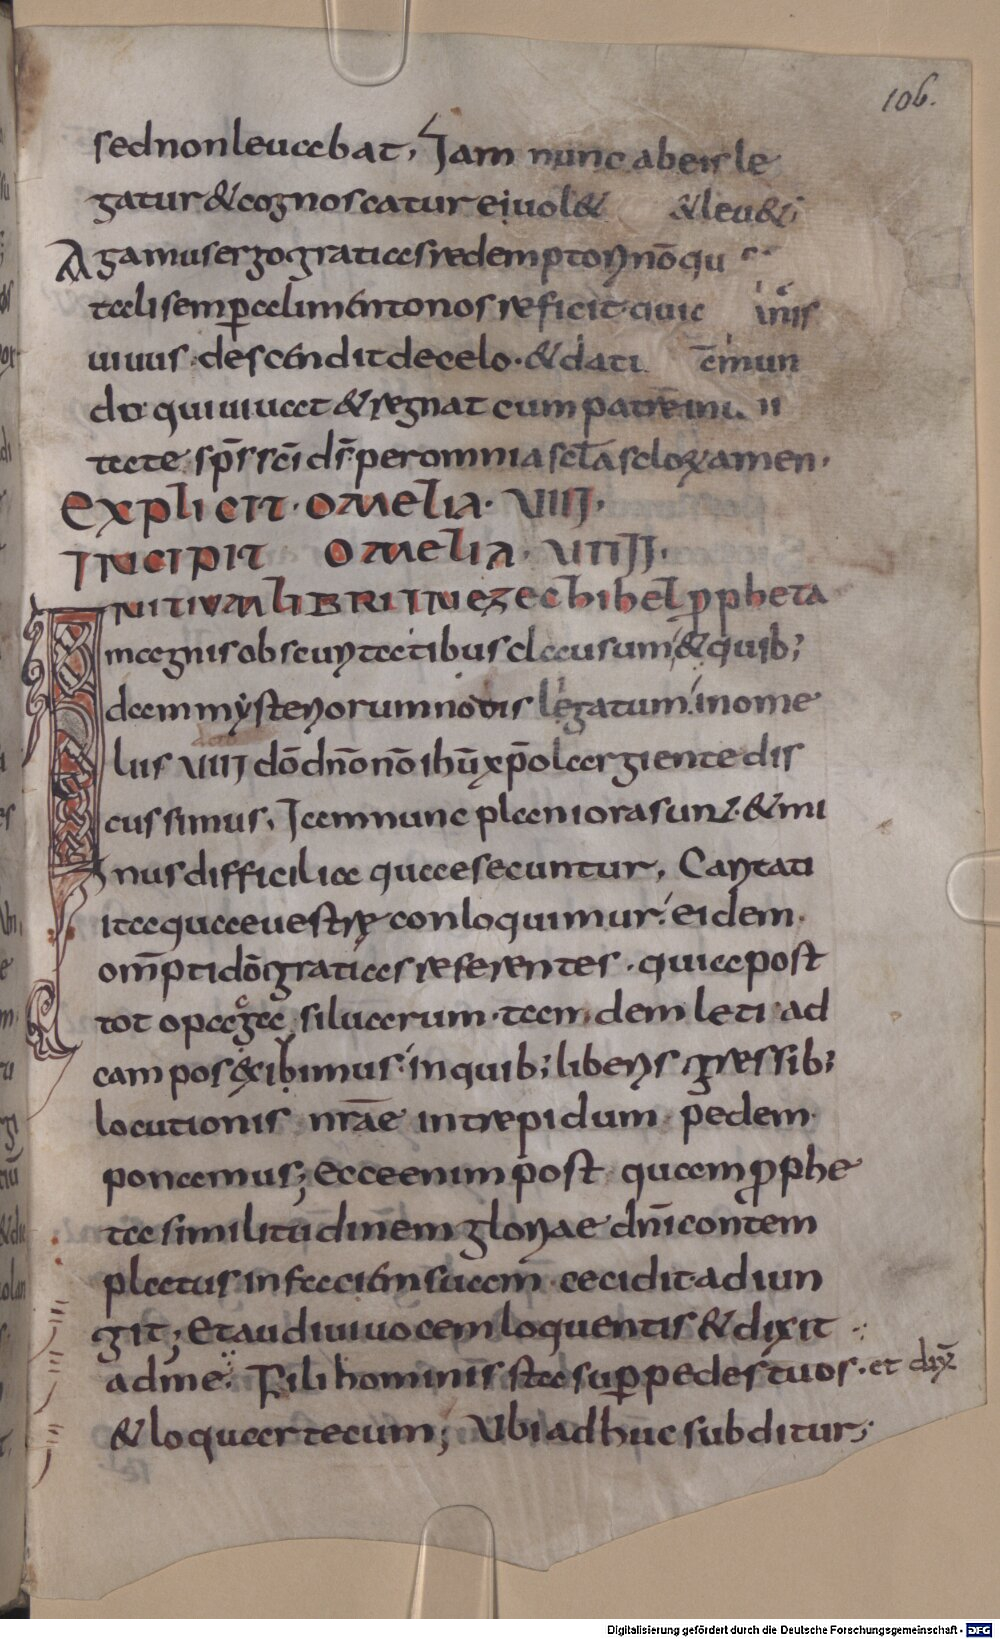 106.
sednonleuabat, Iam nunc abeis le
gatur &cognoscatur eiuol& &leu&;
Agamus ergo gratias redemptori nōqu
tali semp alimento nos reficit quia inis
uiuus descendit decelo. &dati ēmun
do qui uiuat &regnat cum patre inu
tate sp̄s sc̄i dr̄ peromnia scl̄a sclorum amen.
Explicit. omelia. VIIII.
INCIPIT omelia. VIIII.
INITIUM LIBRI IN ezechihel propheta
magnis obscuritatibus clausum, &quib;
dam mysteriorum nodis legatum. in ome
liis VIII dōdn̄o nō ihū xp̄o largiente dis
cussimus, Iam nunc planiora sunt. &mi
nus difficilia quae secuntur, Caritati
itaque uestre conloquimur. eidem
om̄pti dō gratias referentes. quia post
tot opaga siluarum. tam dem leti ad
campos exibimus. in quib; liberis gressib;
locutionis nrāe intrepidum pedem
ponamus; ecce enim post quam prophe
ta similitudinem gloriae dn̄i contem
platus in faciem suam cecidit. adiun
git; et audiui uocem loquentis &dixit
adme. Fili hominis sta super pedes tuos. et dix̄
&loquar tecum; Ubi adhuc subditur;
Digitalisierung gefördert durch die Deutsche Forschungsgemeinschaft - DFG